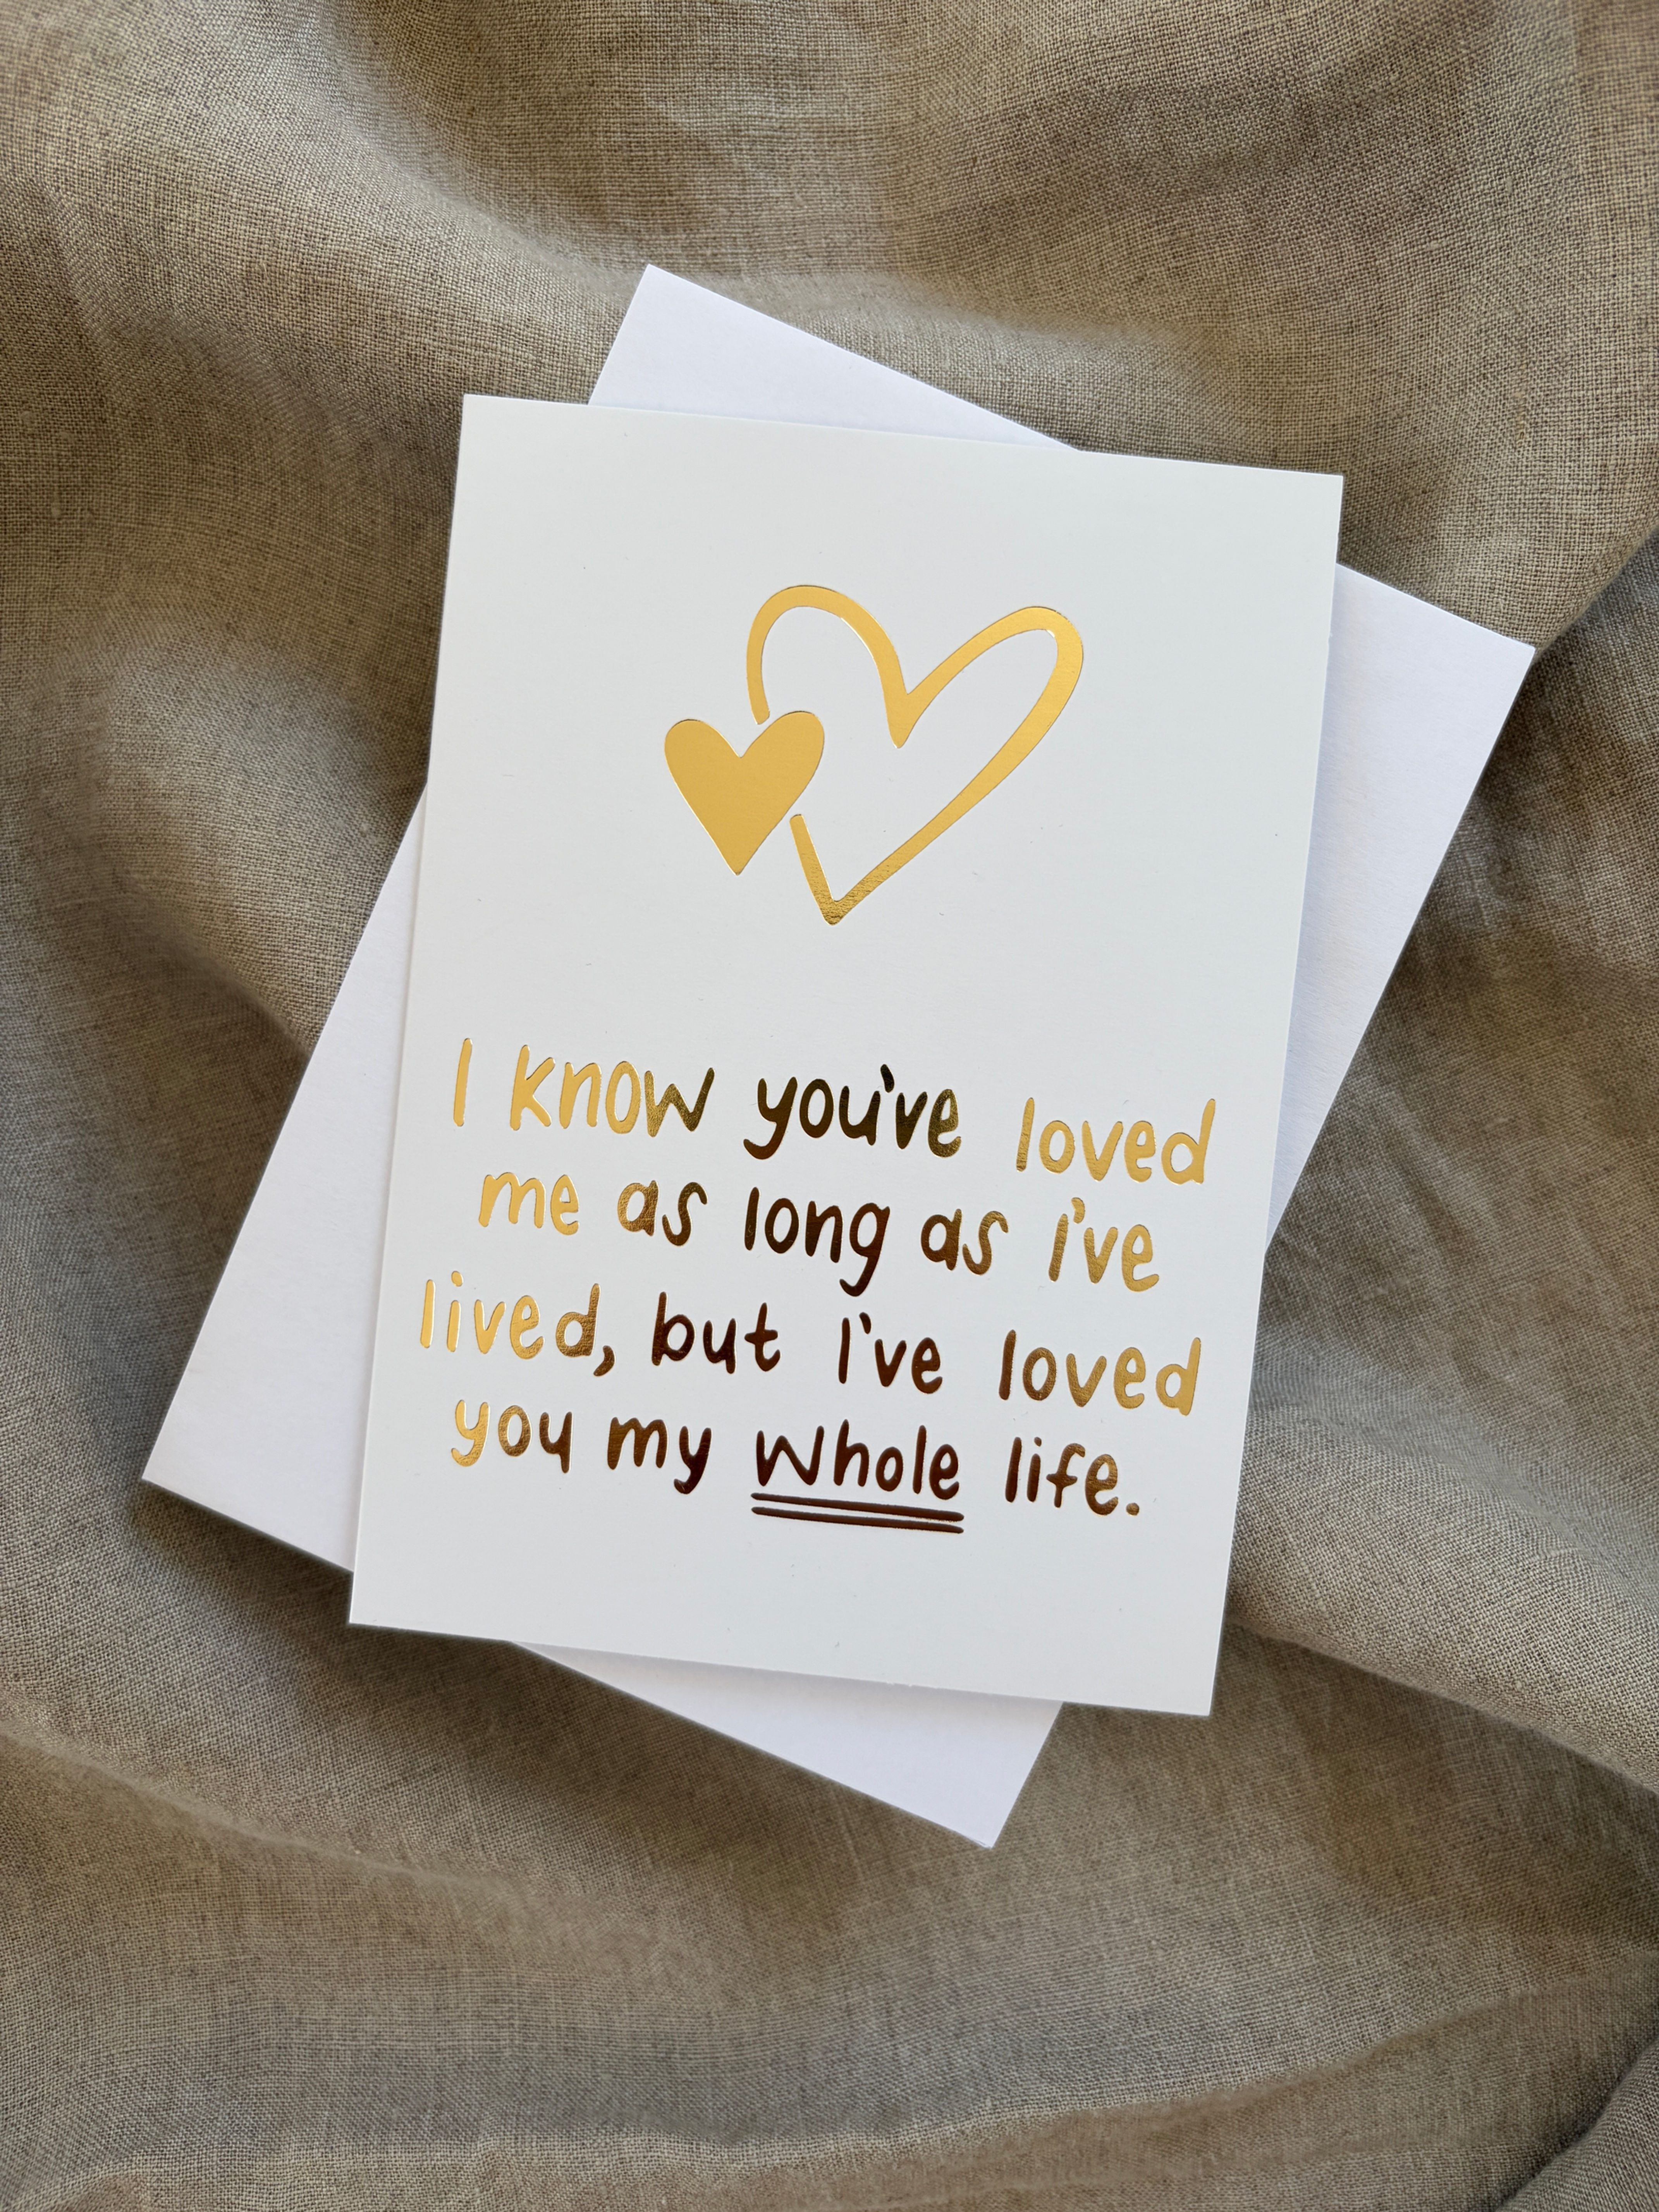 I know you've loved
me as long as I've
lived, but I've loved
you my whole life.